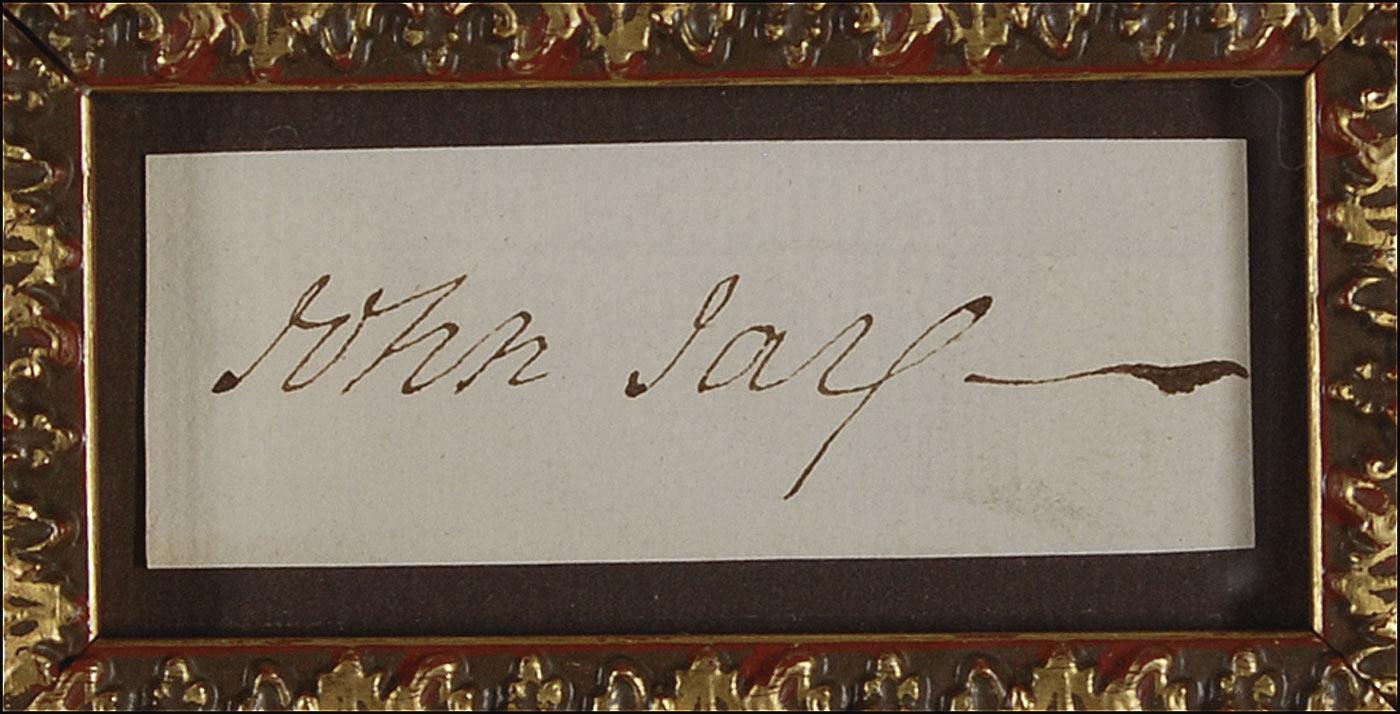 John Jay